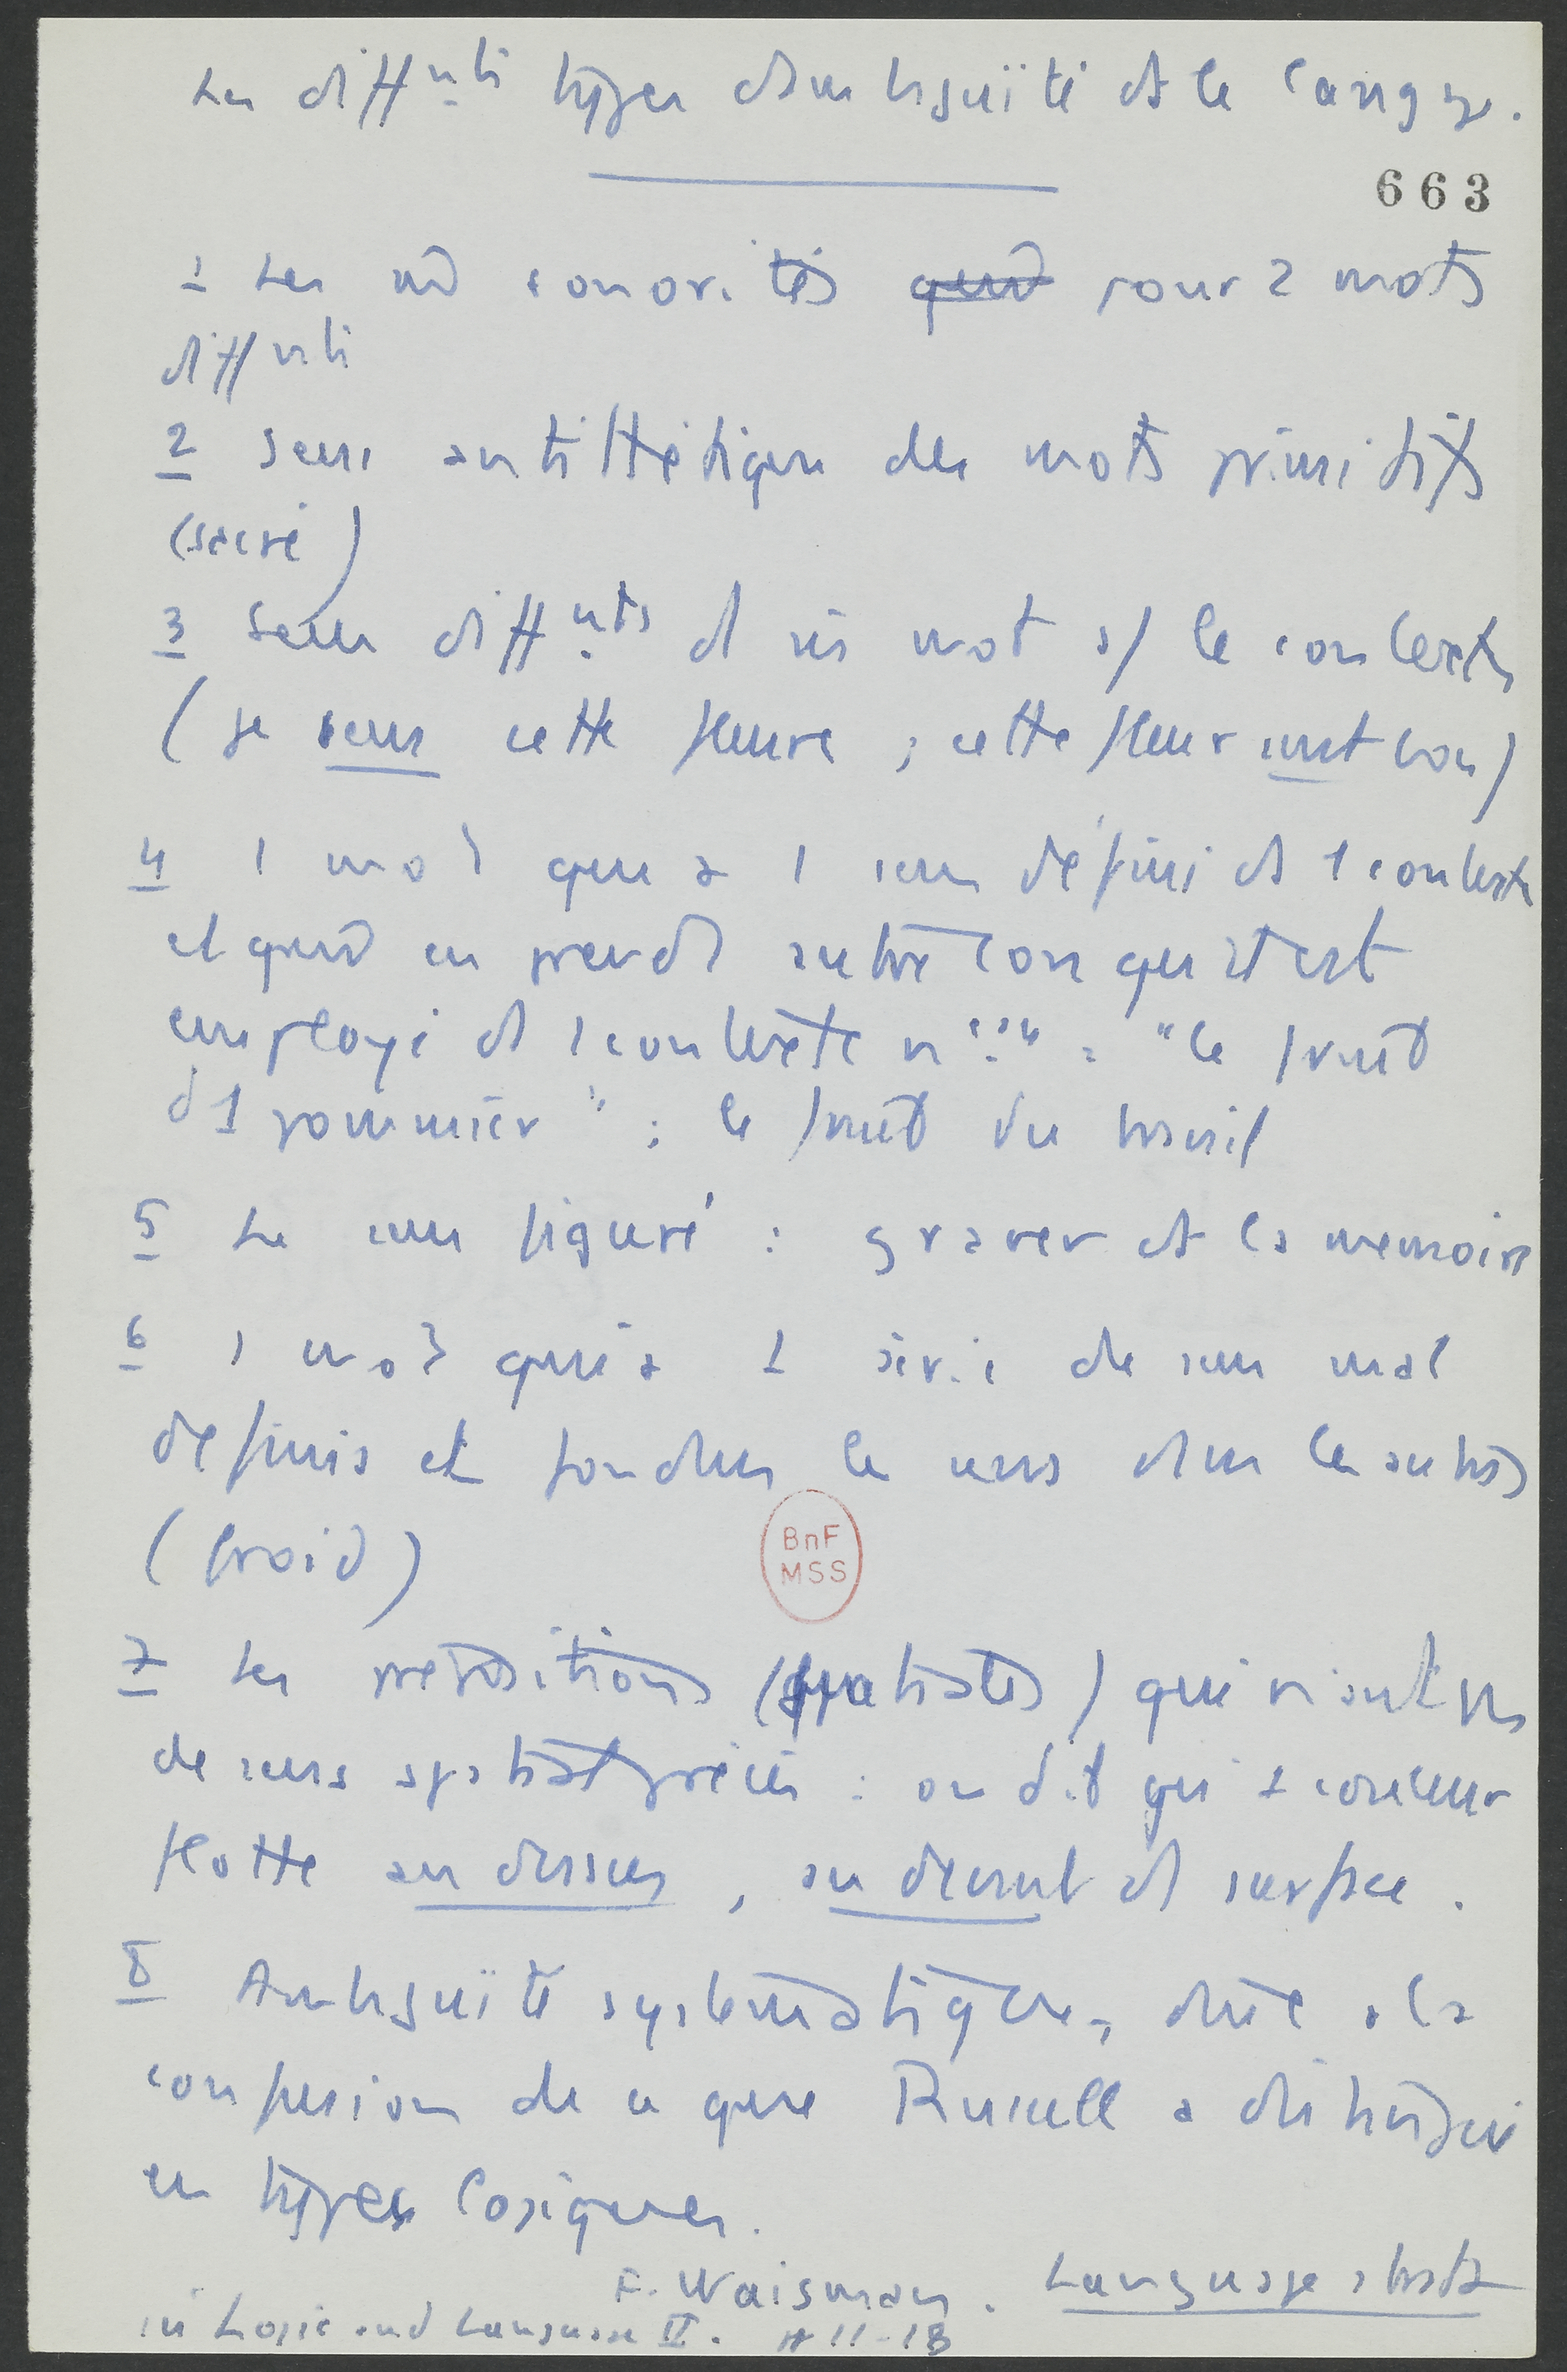 Les diff<sup>nts</sup> types d'ambiguïté ds le langage.
663
1 Les m̂ sonorités quand pour 2 mots
diff<sup>nts</sup>
2 sens antithétiques des mots primitifs
(sacré)
3 Sens diff<sup>nts</sup> d'1 m̂ mot s/ le contexte
(je sens cette fleur ; cette fleur sent bon)
4 1 mot qui a 1 sens défini ds 1 contexte
et qui en prend 1 autre lorsqu'il est
employé ds 1 contexte : "le fruit
d'1 pommier" : le fruit du travail
5 Le sens figuré : graver ds la mémoire
6 1 mot qui a 1 série de sens mal
définis et fondus les uns dans les autres
(froid)
7 Les prépositions (spatiales) qui n'ont pas
de sens spatial précis : on dit qu'1 couleur
flotte au dessus, au devant d'1 surface.
8 Ambiguïté systématique, due à la
confusion de ce que Russell a distingué
en types logiques.
F. Waisman. Language strata
in Logic and Language II. p 11-13
BnF
MSS